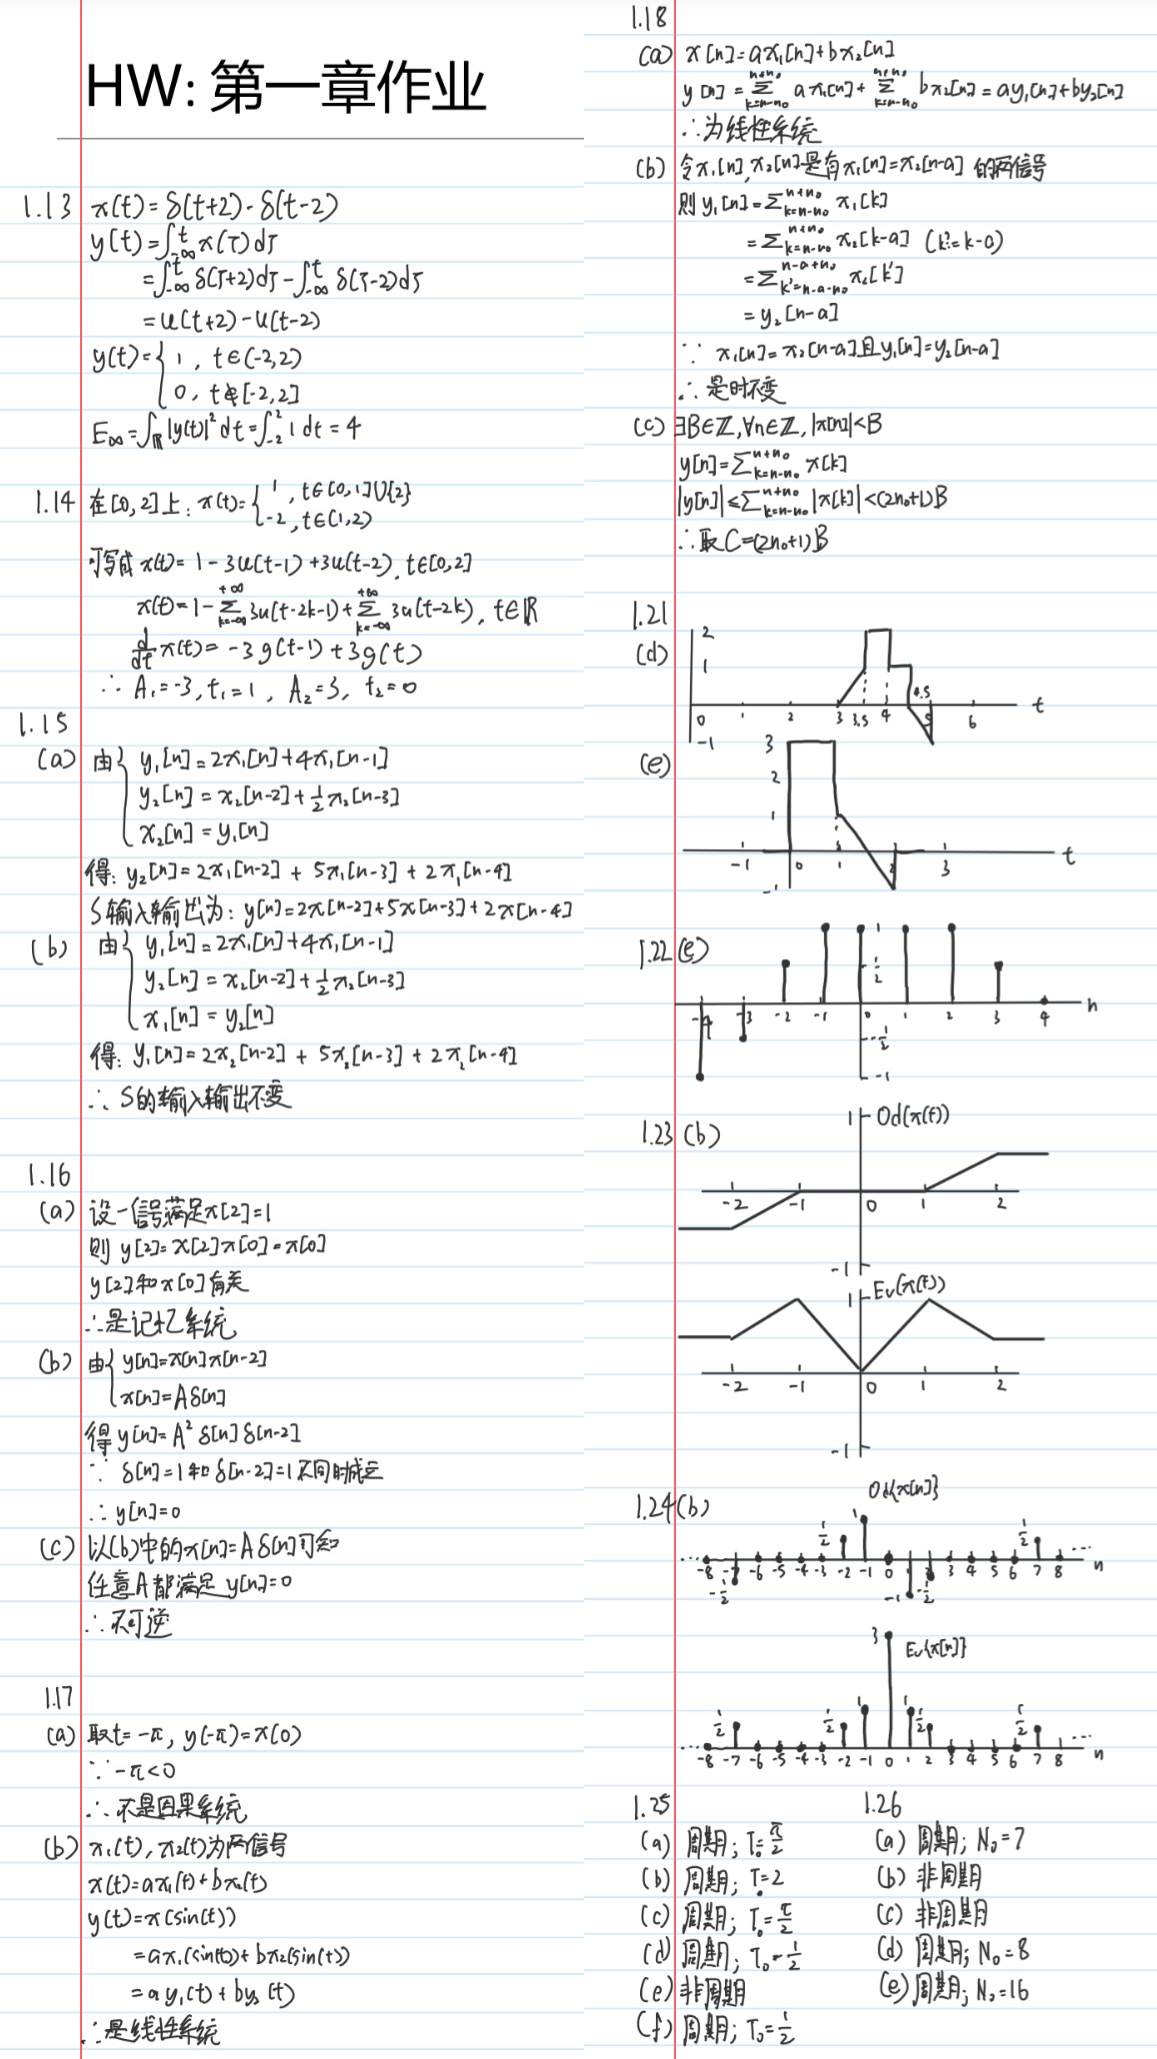 HW: 第一章作业
1.13 x(t)=δ(t+2)-δ(t-2)
y(t)=∫_{-∞}^{t} x(τ)dτ
=∫_{-∞}^{t} δ(τ+2)dτ-∫_{-∞}^{t} δ(τ-2)dτ
=u(t+2)-u(t-2)
y(t)={1, t∈(-2,2)
0, t∉[-2,2]
E∞=∫_ℝ|y(t)|²dt=∫_{-2}^{2} 1 dt=4
1.14 在[0,2]上: x(t)={1, t∈[0,1]∪{2}
-2, t∈(1,2)
可写成 x(t)=1-3u(t-1)+3u(t-2), t∈[0,2]
x(t)=1-∑_{k=-∞}^{+∞}3u(t-2k-1)+∑_{k=-∞}^{+∞}3u(t-2k), t∈ℝ
d/dt x(t)=-3g(t-1)+3g(t)
∴ A₁=-3, t₁=1, A₂=3, t₂=0
1.15
(a) 由{y₁[n]=2x₁[n]+4x₁[n-1]
y₂[n]=x₂[n-2]+½x₂[n-3]
x₂[n]=y₁[n]
得: y₂[n]=2x₁[n-2]+5x₁[n-3]+2x₁[n-4]
S输入输出为: y[n]=2x[n-2]+5x[n-3]+2x[n-4]
(b) 由{y₁[n]=2x₁[n]+4x₁[n-1]
y₂[n]=x₂[n-2]+½x₂[n-3]
x₁[n]=y₂[n]
得: y₁[n]=2x₂[n-2]+5x₂[n-3]+2x₂[n-4]
∴ S的输入输出不变
1.16
(a) 设一信号满足x[2]=1
则 y[2]=x[2]x[0]=x[0]
y[2]和x[0]有关
∴是记忆系统
(b) 由{y[n]=x[n]x[n-2]
x[n]=Aδ[n]
得 y[n]=A²δ[n]δ[n-2]
∵ δ[n]=1和δ[n-2]=1不同时成立
∴ y[n]=0
(c) 以(b)中的x[n]=Aδ[n]可知
任意A都满足 y[n]=0
∴不可逆
1.17
(a) 取t=-π, y(-π)=x(0)
∵-π<0
∴不是因果系统
(b) x₁(t), x₂(t)为两信号
x(t)=ax₁(t)+bx₂(t)
y(t)=x(sin(t))
=ax₁(sin(t))+bx₂(sin(t))
=ay₁(t)+by₂(t)
∴是线性系统
1.18
(a) x[n]=ax₁[n]+bx₂[n]
y[n]=∑_{k=n-n₀}^{n+n₀} ax₁[n]+∑_{k=n-n₀}^{n+n₀} bx₂[n]=ay₁[n]+by₂[n]
∴为线性系统
(b) 令x₁[n],x₂[n]是有x₁[n]=x₂[n-a] 的两信号
则 y₁[n]=∑_{k=n-n₀}^{n+n₀} x₁[k]
=∑_{k=n-n₀}^{n+n₀} x₂[k-a] (k'=k-a)
=∑_{k'=n-a-n₀}^{n-a+n₀} x₂[k']
=y₂[n-a]
∵ x₁[n]=x₂[n-a]且y₁[n]=y₂[n-a]
∴是时不变
(c) ∃B∈ℤ,∀n∈ℤ,|x[n]|<B
y[n]=∑_{k=n-n₀}^{n+n₀} x[k]
|y[n]|≤∑_{k=n-n₀}^{n+n₀}|x[k]|<(2n₀+1)B
∴取C=(2n₀+1)B
1.21
(d)
2
1
0 1 2 3 3.5 4 4.5 5 6 t
-1
(e)
3
2
1
-1 0 1 2 3 t
-1
1.22(e)
1
½
-4 -3 -2 -1 0 1 2 3 4 n
-½
-1
1.23(b)
1 Od(x(t))
-2 -1 0 1 2
-1
1 Ev(x(t))
-2 -1 0 1 2
-1
1.24(b)
Od{x[n]}
½ 1 ½
... -8 -7 -6 -5 -4 -3 -2 -1 0 1 2 3 4 5 6 7 8 ... n
-½ -1 -½
3 Ev{x[n]}
½ ½ 1 1 ½ ½
... -8 -7 -6 -5 -4 -3 -2 -1 0 1 2 3 4 5 6 7 8 ... n
1.25
(a) 周期; T₀=π/2
(b) 周期; T₀=2
(c) 周期; T₀=π/2
(d) 周期; T₀=½
(e) 非周期
(f) 周期; T₀=½
1.26
(a) 周期; N₀=7
(b) 非周期
(c) 非周期
(d) 周期; N₀=8
(e) 周期; N₀=16